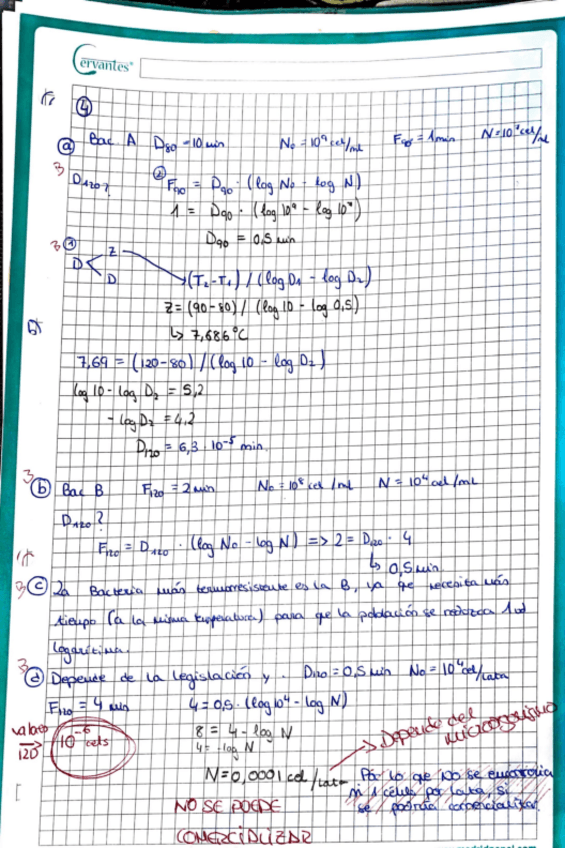 Cervantes
4
a Bac. A D80 = 10 min No = 10⁹ cel/ml F90 = 1 min N = 10⁷ cel/ml
3
D120? ② F90 = D90 · (log No - log N)
1 = D90 · (log 10⁹ - log 10⁷)
D90 = 0,5 min
3 ① z
D < D → (T2-T1) / (log D1 - log D2)
z = (90-80) / (log 10 - log 0,5)
↳ 7,686°C
7,69 = (120-80) / (log 10 - log D2)
log 10 - log D2 = 5,2
- log D2 = 4,2
D120 = 6,3 · 10⁻⁵ min.
3
b Bac B F120 = 2 min No = 10⁸ cel/ml N = 10⁴ cel/ml
D120?
F120 = D120 · (log No - log N) => 2 = D120 · 4
↳ 0,5 min
3 c La Bacteria más termorresistente es la B, ya qe necesita más
tiempo (a la misma temperatura) para qe la población se reduzca 1 ud
logarítmica.
3
d Depende de la legislación y . D120 = 0,5 min No = 10⁴ cel/lata
F120 = 4 min 4 = 0,5 · (log 10⁴ - log N)
valores
120 → 10⁻⁶ cels
8 = 4 - log N
4 = - log N
→ Depende del
microorganismo
N = 0,0001 cel/lata Por lo qe no se encontraría
ni 1 célula por lata, sí
se podría comercializar.
NO SE PUEDE
COMERCIALIZAR